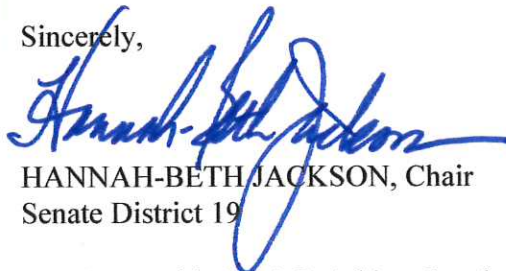 Sincerely,
Hannah-Beth Jackson
HANNAH-BETH JACKSON, Chair
Senate District 19